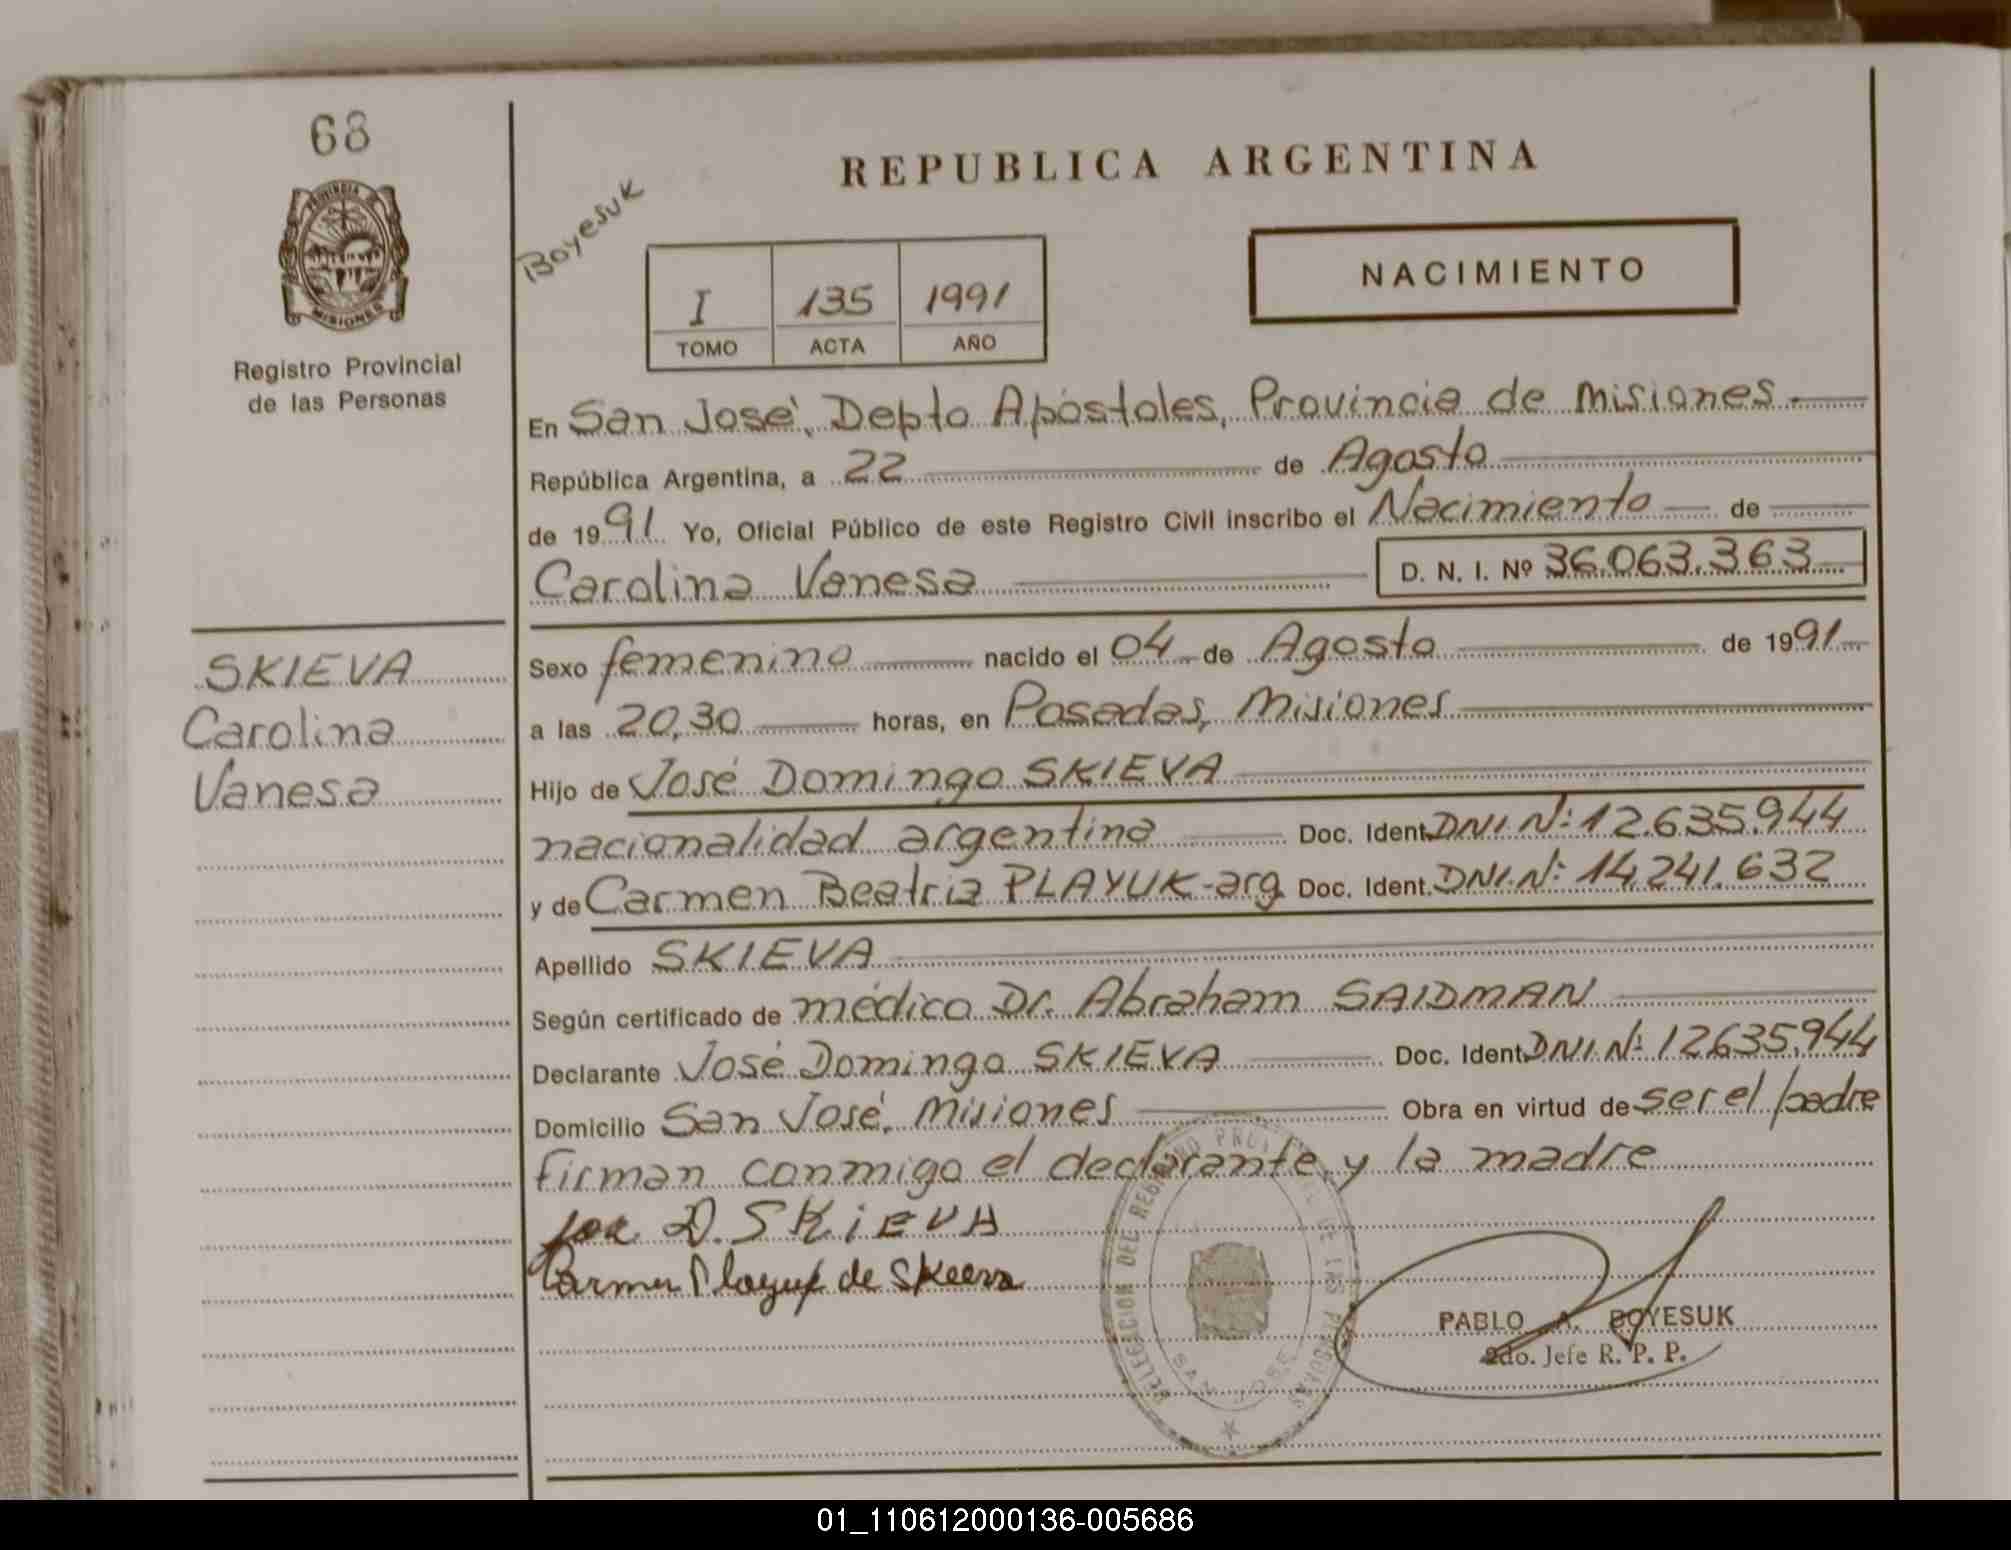 68
PROVINCIA DE
MISIONES
Registro Provincial
de las Personas
SKIEVA
Carolina
Vanesa
Boyesuk
REPUBLICA ARGENTINA
I 135 1991
TOMO ACTA AÑO
NACIMIENTO
En San José, Depto Apóstoles, Provincia de Misiones
República Argentina, a 22 de Agosto
de 1991 Yo, Oficial Público de este Registro Civil inscribo el Nacimiento de
Carolina Vanesa D. N. I. Nº 36.063.363
Sexo femenino nacido el 04 de Agosto de 1991
a las 20,30 horas, en Posadas, Misiones
Hijo de José Domingo SKIEVA
nacionalidad argentina Doc. Ident. DNI Nº: 12.635.944
y de Carmen Beatriz PLAYUK-arg Doc. Ident. DNI.Nº: 14.241.632
Apellido SKIEVA
Según certificado de médico Dr. Abraham SAIDMAN
Declarante José Domingo SKIEVA Doc. Ident. DNI.Nº: 12635.944
Domicilio San José, Misiones Obra en virtud de ser el padre
Firman conmigo el declarante y la madre
D. SKiEVA
Carmen Playuk de Skieva
DELEGACION DEL REGISTRO PROVINCIAL DE LAS PERSONAS
SAN JOSE
PABLO A. BOYESUK
2do. Jefe R. P. P.
01_110612000136-005686